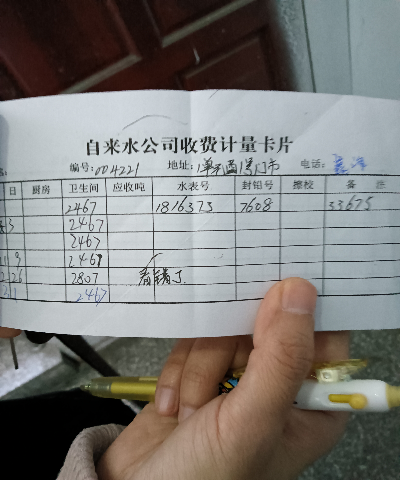 自来水公司收费计量卡片
编号:004221 地址: 电话:
日 厨房 卫生间 应收吨 水表号 封铅号 缴校 备 注
2467 1816373 7608 33675
3 2467
2467
9 2467
26 2807 看错了
2467